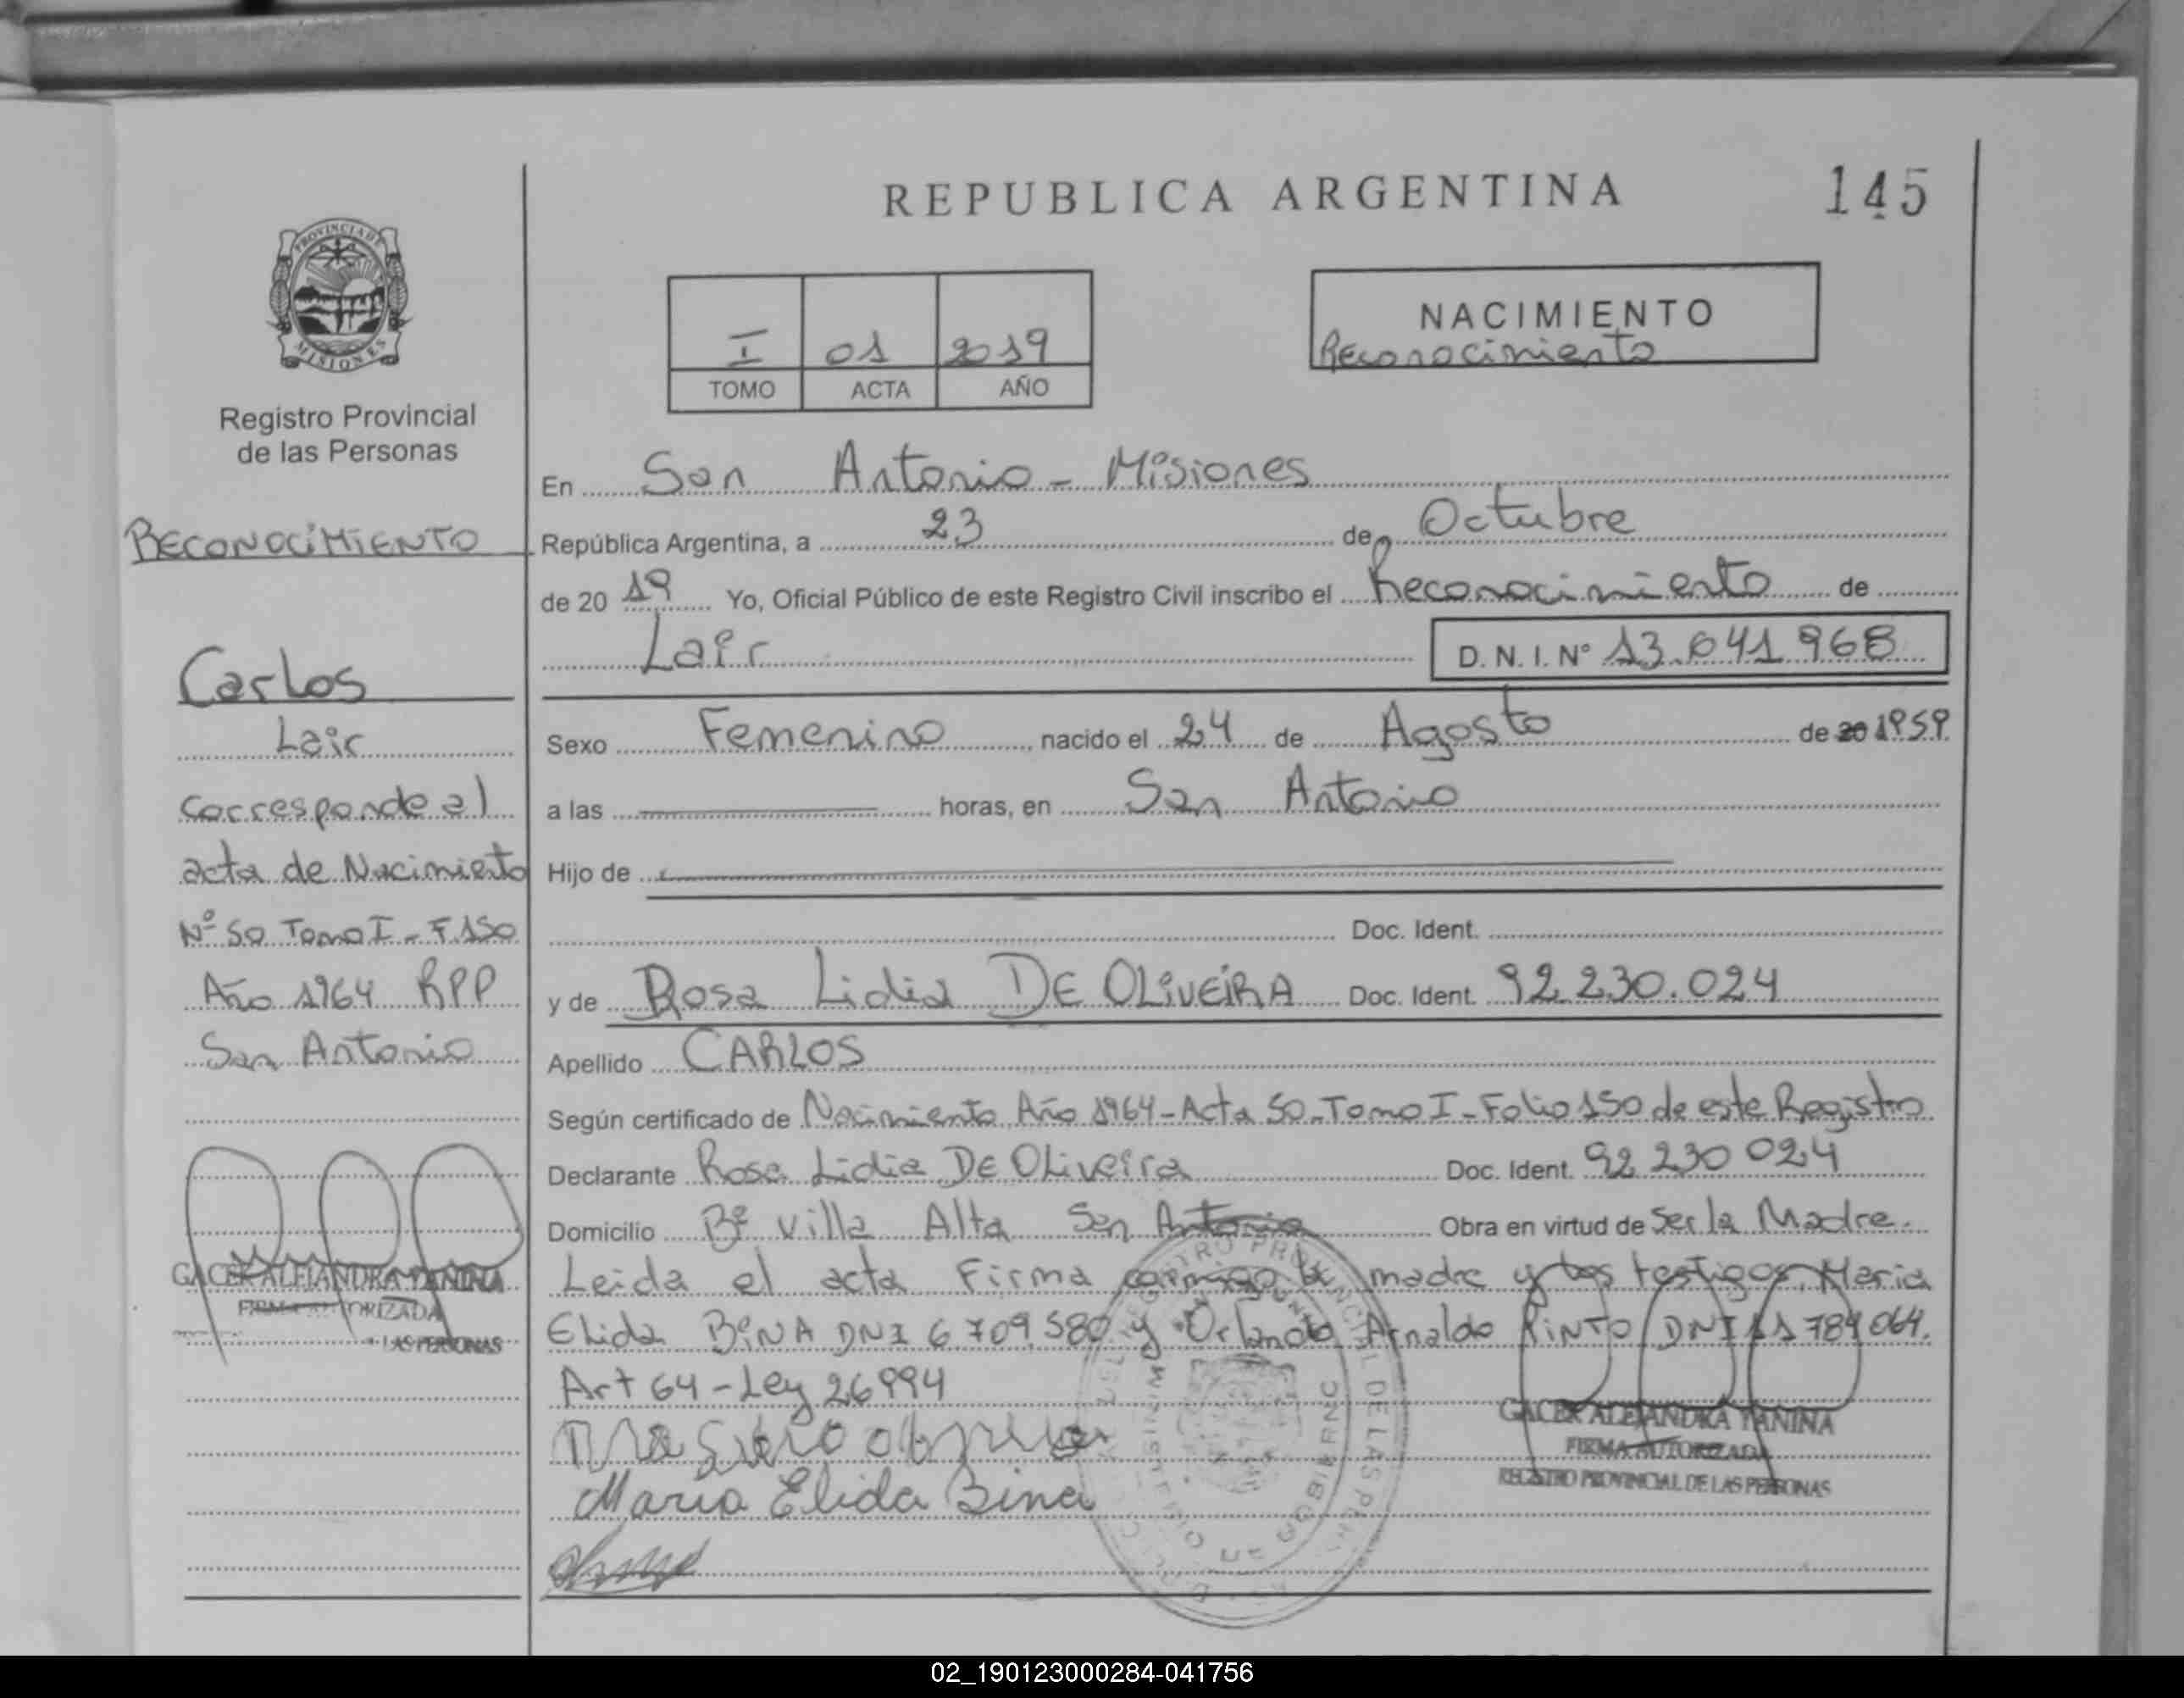 REPUBLICA ARGENTINA
145
PROVINCIA DE
MISIONES
Registro Provincial
de las Personas
I 01 2019
TOMO ACTA AÑO
NACIMIENTO
Reconocimiento
RECONOCIMIENTO
Carlos
Lair
Corresponde al
acta de Nacimiento
Nº 50 Tomo I - F.150
Año 1964 RPP
San Antonio
GACEK ALEJANDRA YANINA
FIRMA AUTORIZADA
LAS PERSONAS
En San Antonio - Misiones
República Argentina, a 23 de Octubre
de 20 19 Yo, Oficial Público de este Registro Civil inscribo el Reconocimiento de
Lair D. N. I. Nº 13.641 968
Sexo Femenino nacido el 24 de Agosto de 20 1959
a las horas, en San Antonio
Hijo de
Doc. Ident.
y de Rosa Lidia DE OLiVEiRA Doc. Ident. 92.230.024
Apellido CARLOS
Según certificado de Nacimiento Año 1964 - Acta 50 - Tomo I - Folio 150 de este Registro
Declarante Rosa Lidia DE OLiveira Doc. Ident. 92 230 024
Domicilio Bº Villa Alta San Antonio Obra en virtud de Ser la Madre.
Leida el acta Firma conmigo la madre y los testigos, Maria
Elida BiNA DNI 6 709.580 y Orlando Arnaldo PiNTO DNI 11 784 064.
Art 64 - Ley 26994
Maria Elida Bina
GACEK ALEJANDRA YANINA
FIRMA AUTORIZADA
REGISTRO PROVINCIAL DE LAS PERSONAS
02_190123000284-041756